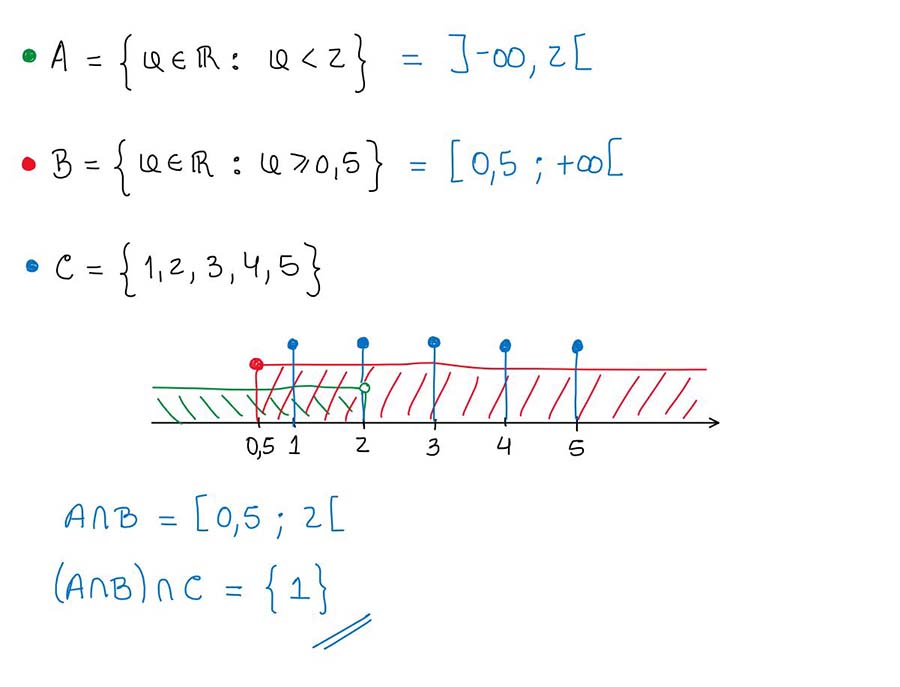 • A = {x ∈ ℝ : x < 2} = ]-∞, 2[
• B = {x ∈ ℝ : x ⩾ 0,5} = [0,5 ; +∞[
• C = {1, 2, 3, 4, 5}
0,5 1 2 3 4 5
A∩B = [0,5 ; 2[
(A∩B)∩C = {1}